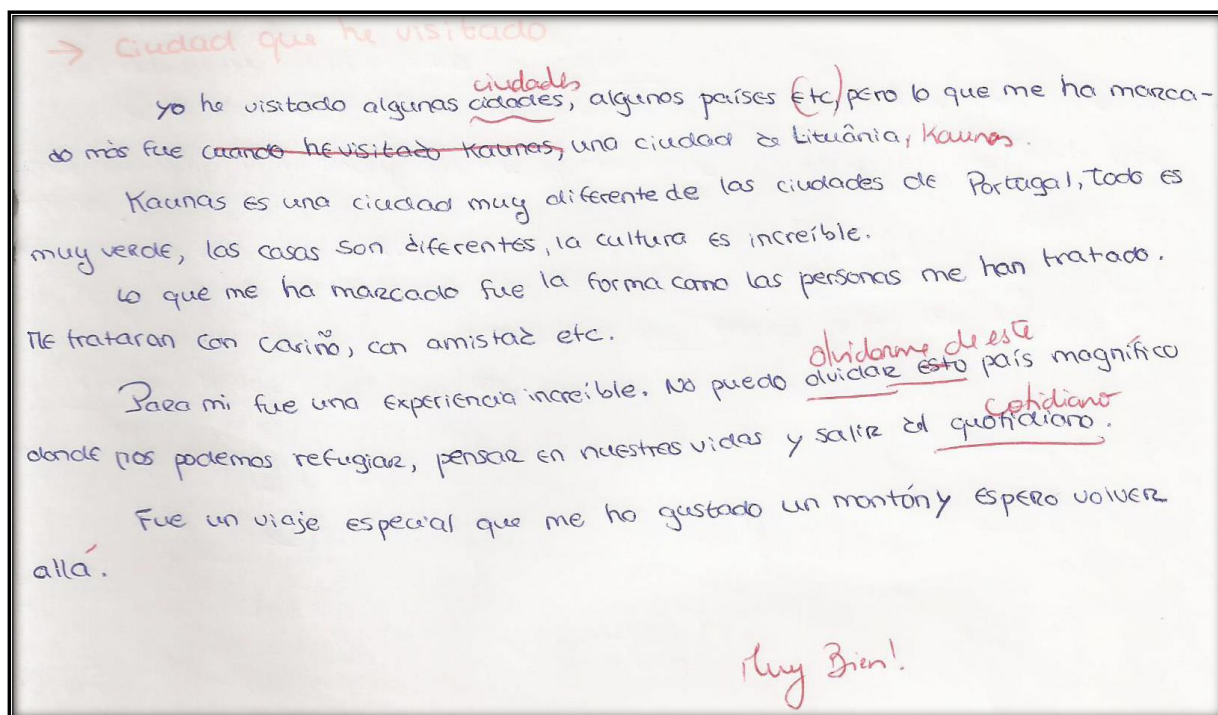 → Ciudad que he visitado
ciudades
yo he visitado algunas cidades, algunos países (Etc) pero lo que me ha marca-
do más fue cuando he visitado Kaunas, una ciudad de Lituânia, Kaunas.
Kaunas es una ciudad muy diferente de las ciudades de Portugal, todo es
muy verde, las casas son diferentes, la cultura es increíble.
Lo que me ha marcado fue la forma como las personas me han tratado.
Me trataran con cariño, con amistad etc.
olvidarme de este
Para mi fue una experiencia increíble. No puedo olvidar esto país magnífico
cotidiano
donde nos podemos refugiar, pensar en nuestras vidas y salir del quotidiano.
Fue un viaje especial que me ha gustado un montón y espero volver
allá.
Muy Bien!